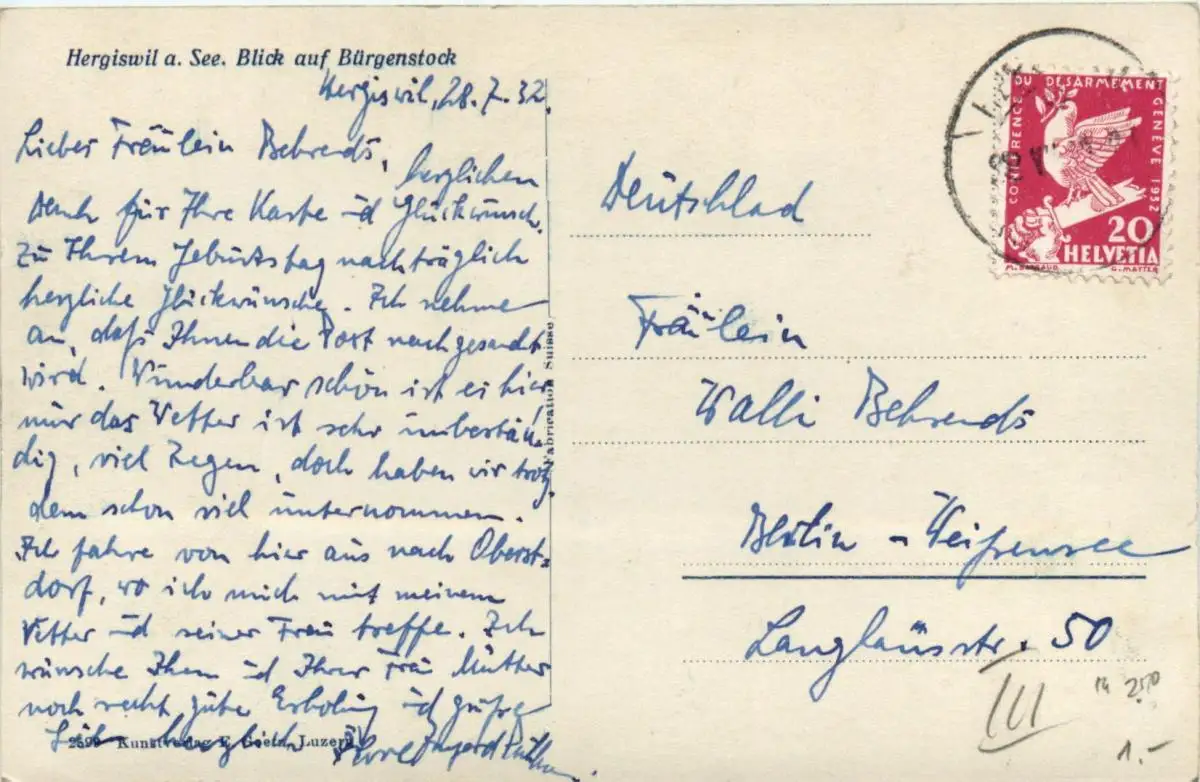 Hergiswil a. See. Blick auf Bürgenstock
Hergiswil, 28.7.32.
Liebes Fräulein Behrends,
herzlichen
Dank für Ihre Karte ud Glückwünsch.
Zu Ihrem Geburtstag nachträglich
herzliche Glückwünsche. Ich nehme
an, daß Ihnen die Post nachgesandt
wird. Wunderbar schön ist es hier
nur das Wetter ist sehr unbestän-
dig, viel Regen, doch haben wir trotz
dem schon viel unternommen.
Ich fahre von hier aus nach Oberst-
dorf, wo ich mich mit meinem
Vetter ud seiner Frau treffe. Ich
wünsche Ihnen ud Ihrer Frau Mutter
noch recht gute Erholung ud grüße
Sie herzlich Ihre
2599 Kunstverlag E. Goetz, Luzern
Fabrication Suisse
CONFERENCE DU DESARMEMENT GENEVE 1932
20
HELVETIA
Deutschlad
Fräulein
Walli Behrends
Berlin - Weißensee
Langhansstr. 50
III
1.-